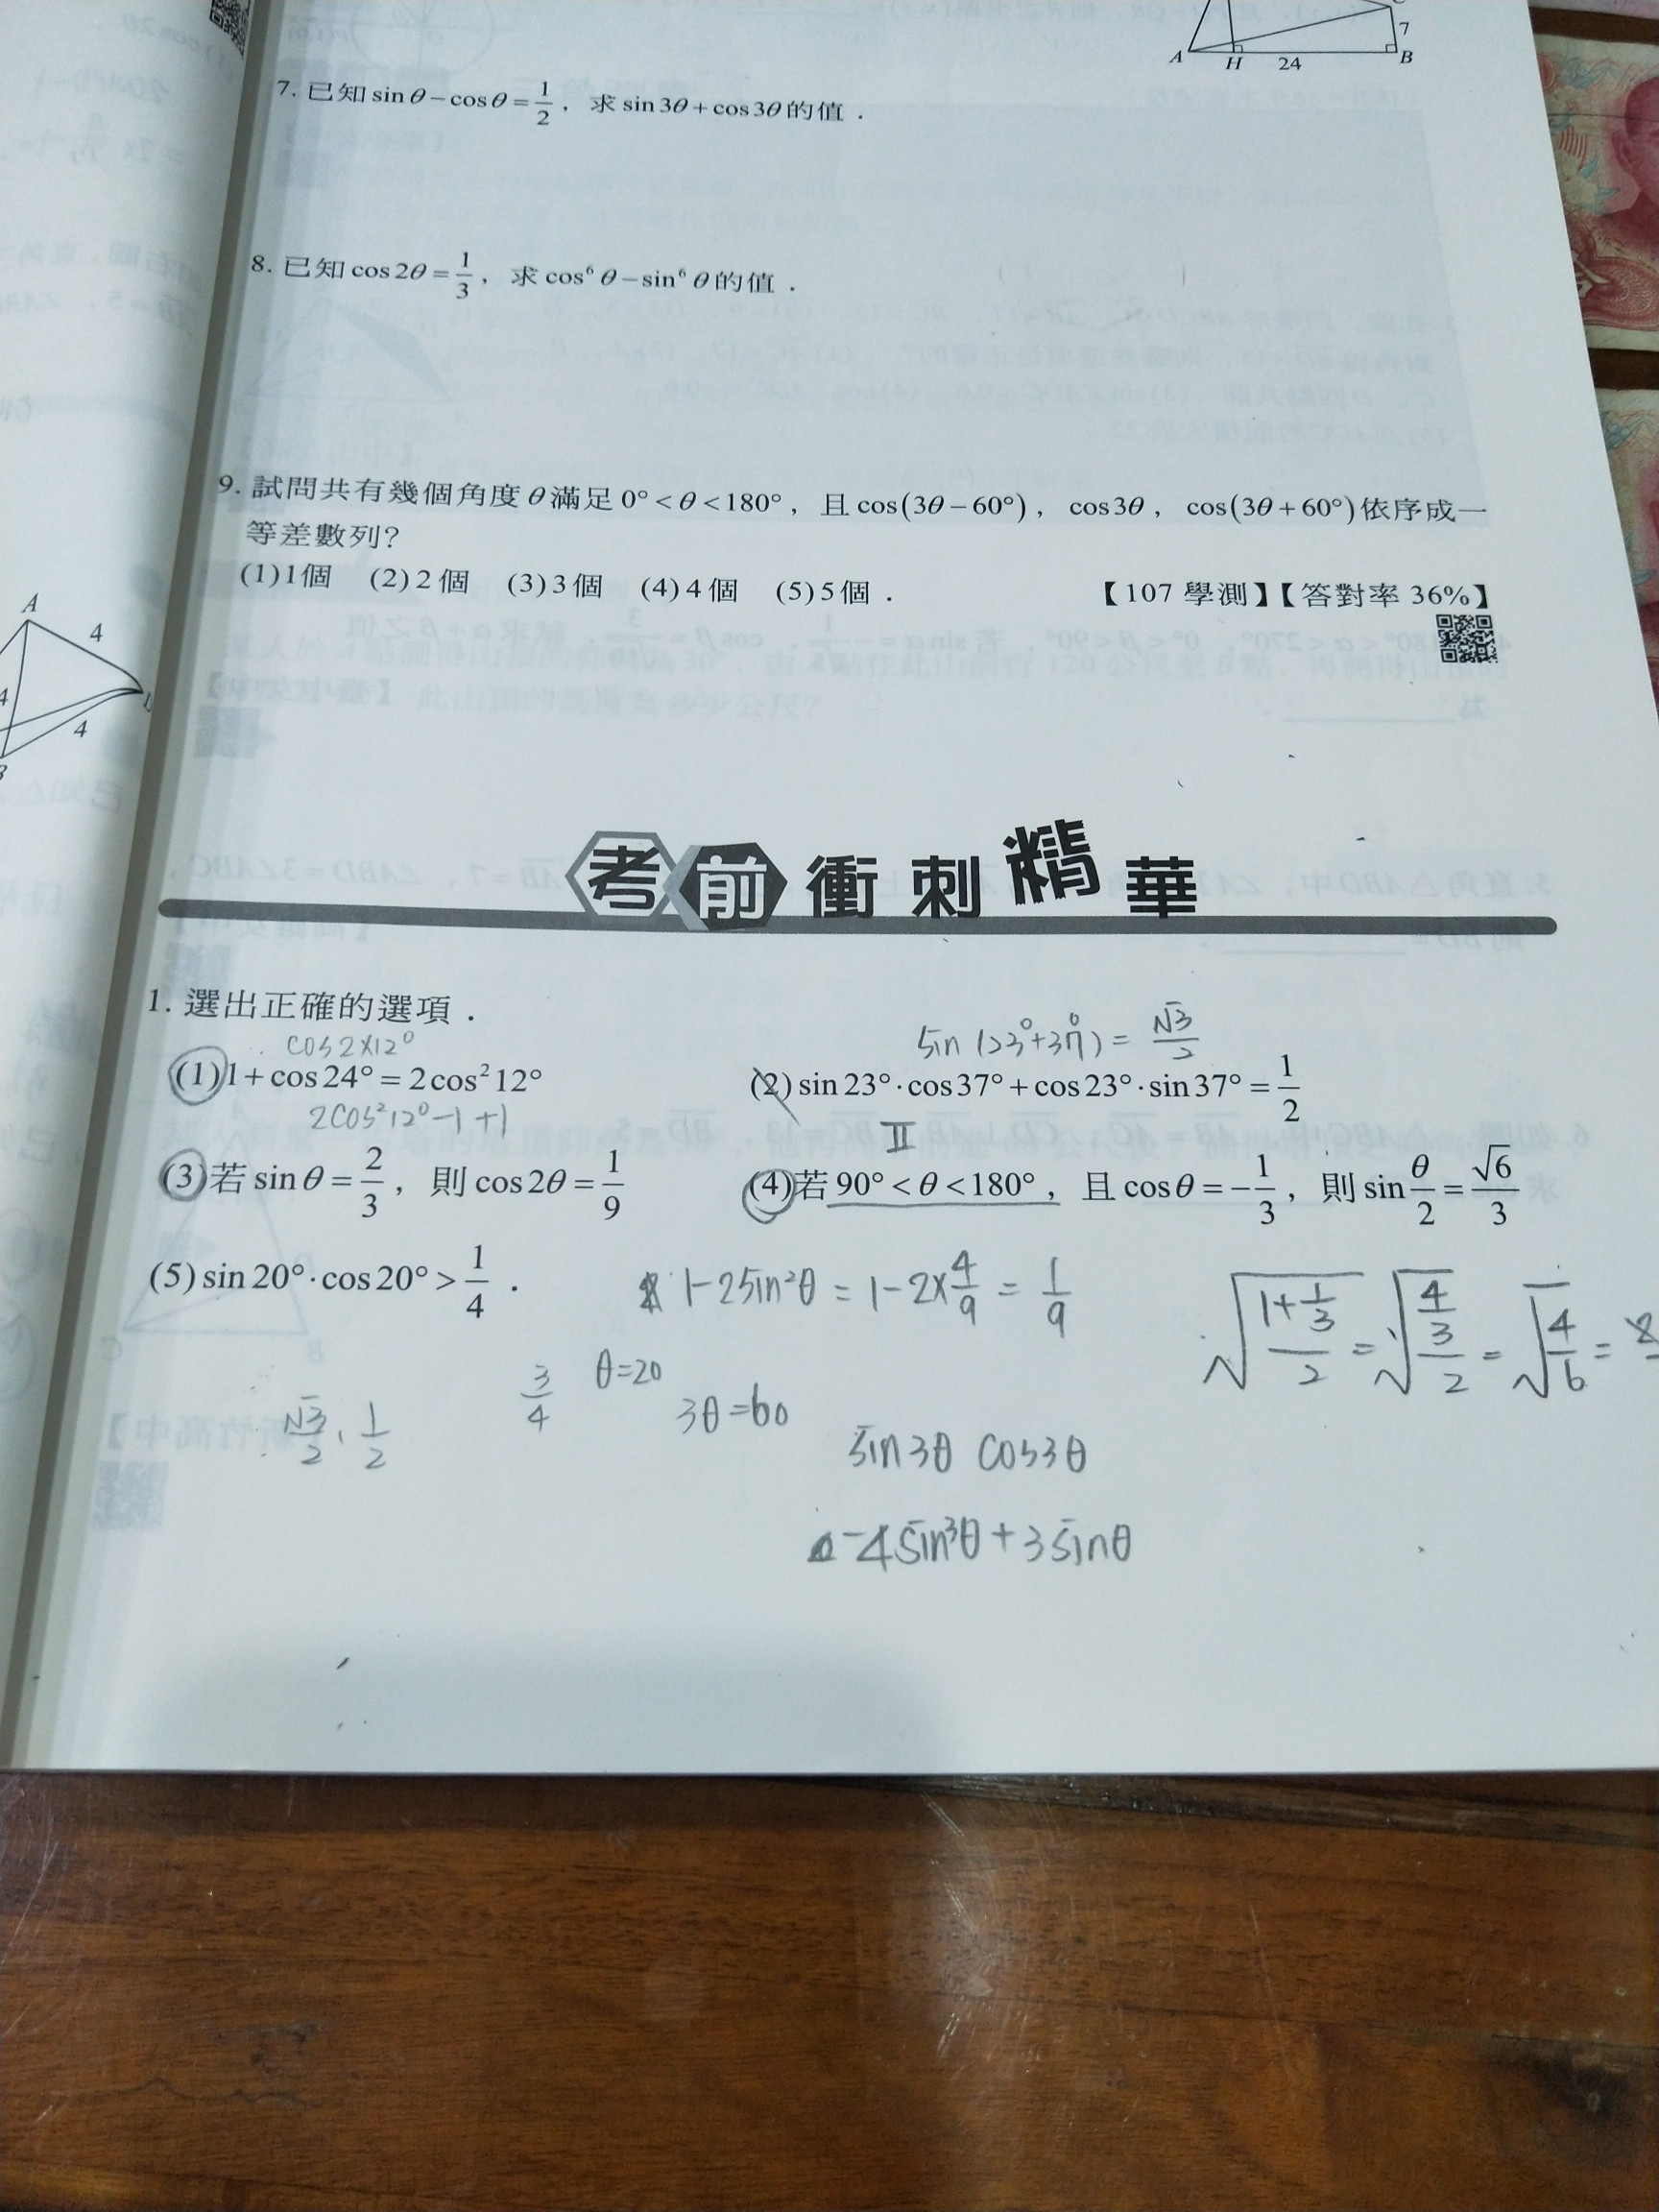 7
A H 24 B
7. 已知 sin θ − cos θ = 1/2，求 sin 3θ + cos 3θ 的值．
8. 已知 cos 2θ = 1/3，求 cos⁶ θ − sin⁶ θ 的值．
9. 試問共有幾個角度 θ 滿足 0° < θ < 180°，且 cos(3θ − 60°)，cos 3θ，cos(3θ + 60°) 依序成一
等差數列？
(1) 1 個 (2) 2 個 (3) 3 個 (4) 4 個 (5) 5 個．
【107 學測】【答對率 36%】
A
4
4
4
考前衝刺精華
1. 選出正確的選項．
cos 2×12°
sin (23°+37°) = √3/2
(1) 1 + cos 24° = 2cos² 12°
(2) sin 23°·cos 37° + cos 23°·sin 37° = 1/2
2cos²12° −1 +1
II
(3) 若 sin θ = 2/3，則 cos 2θ = 1/9
(4) 若 90° < θ < 180°，且 cos θ = −1/3，則 sin θ/2 = √6/3
(5) sin 20°·cos 20° > 1/4．
1−2sin²θ = 1−2×4/9 = 1/9
√((1+1/3)/2) = √((4/3)/2) = √(4/6) =
√3/2、1/2
3/4
θ=20
3θ=60
sin3θ cos3θ
−4sin³θ + 3sinθ